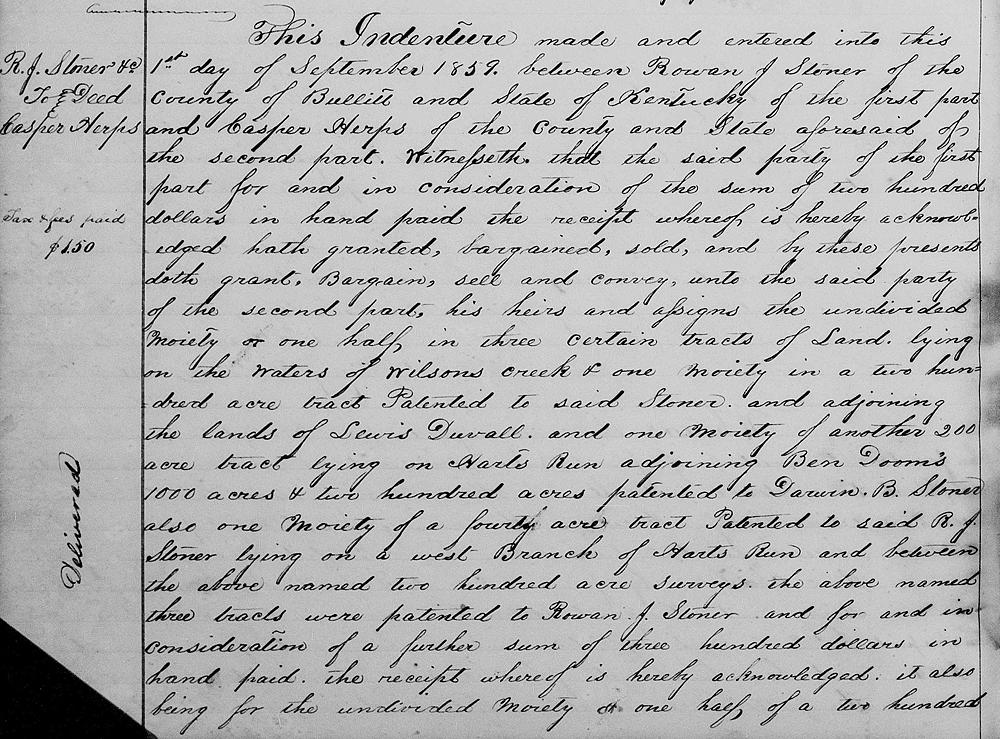 R. J. Stoner &c
To } Deed
Casper Herps
Tax & fees paid
$1.50
Delivered
This Indenture made and entered into this
1st day of September 1859. between Rowan J Stoner of the
County of Bullitt and State of Kentucky of the first part
and Casper Herps of the County and State aforesaid of
the second part. Witnesseth. that the said party of the first
part for and in consideration of the sum of two hundred
dollars in hand paid the receipt whereof, is hereby acknowl-
edged hath granted, bargained, sold, and by these presents
doth grant, Bargain, sell and convey, unto the said party
of the second part, his heirs and assigns the undivided
Moiety or one half, in three certain tracts of Land. lying
on the Waters of Wilsons Creek & one Moiety in a two hun=
dred acre tract Patented to said Stoner. and adjoining
the lands of Lewis Duvall. and one Moiety of another 200
acre tract lying on Harts Run adjoining Ben Doom's
1000 acres & two hundred acres patented to Darwin. B. Stoner
also one Moiety of a fourty acre tract Patented to said R. J.
Stoner lying on a west Branch of Harts Run and between
the above named two hundred acre surveys. the above named
three tracts were patented to Rowan. J. Stoner and for and in
consideration of a further sum of three hundred dollars in
hand paid. the receipt whereof is hereby acknowledged. it also
being for the undivided Moiety or one half, of a two hundred